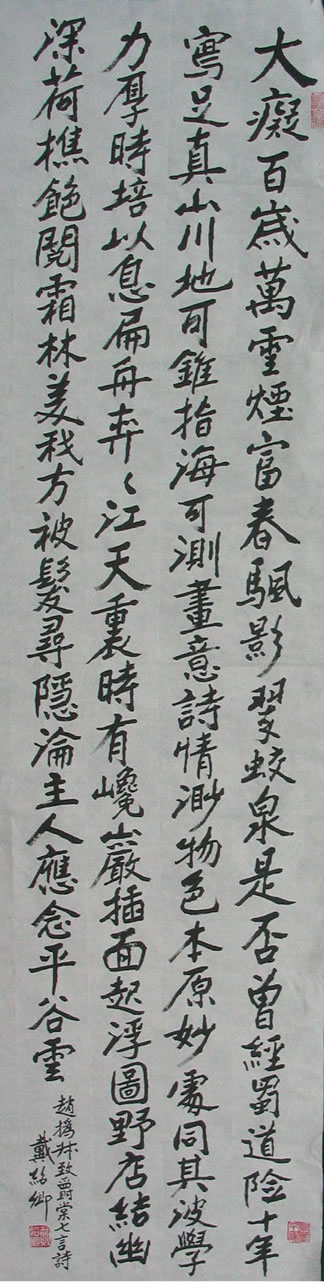 大癡百歲萬雲煙富春颿影翠蛟泉是否曾經蜀道險十年
寫足真山川地可錐指海可測畫意詩情渺物色本原妙處同其波學
力厚時培以息扁舟弈〻江天裏時有巉巖插面起浮圖野店結幽
深荷樵飽閱霜林美我方被髮尋隱淪主人應念平谷雲
趙撝叔致爵棠七言詩
戴紹卿